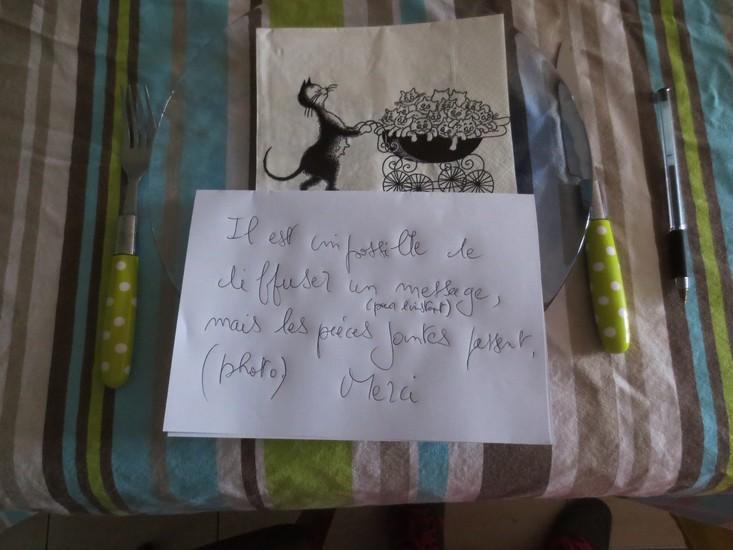 Il est impossible de
diffuser un message,
(pour l'instant)
mais les pièces jointes passent,
(photo) Merci